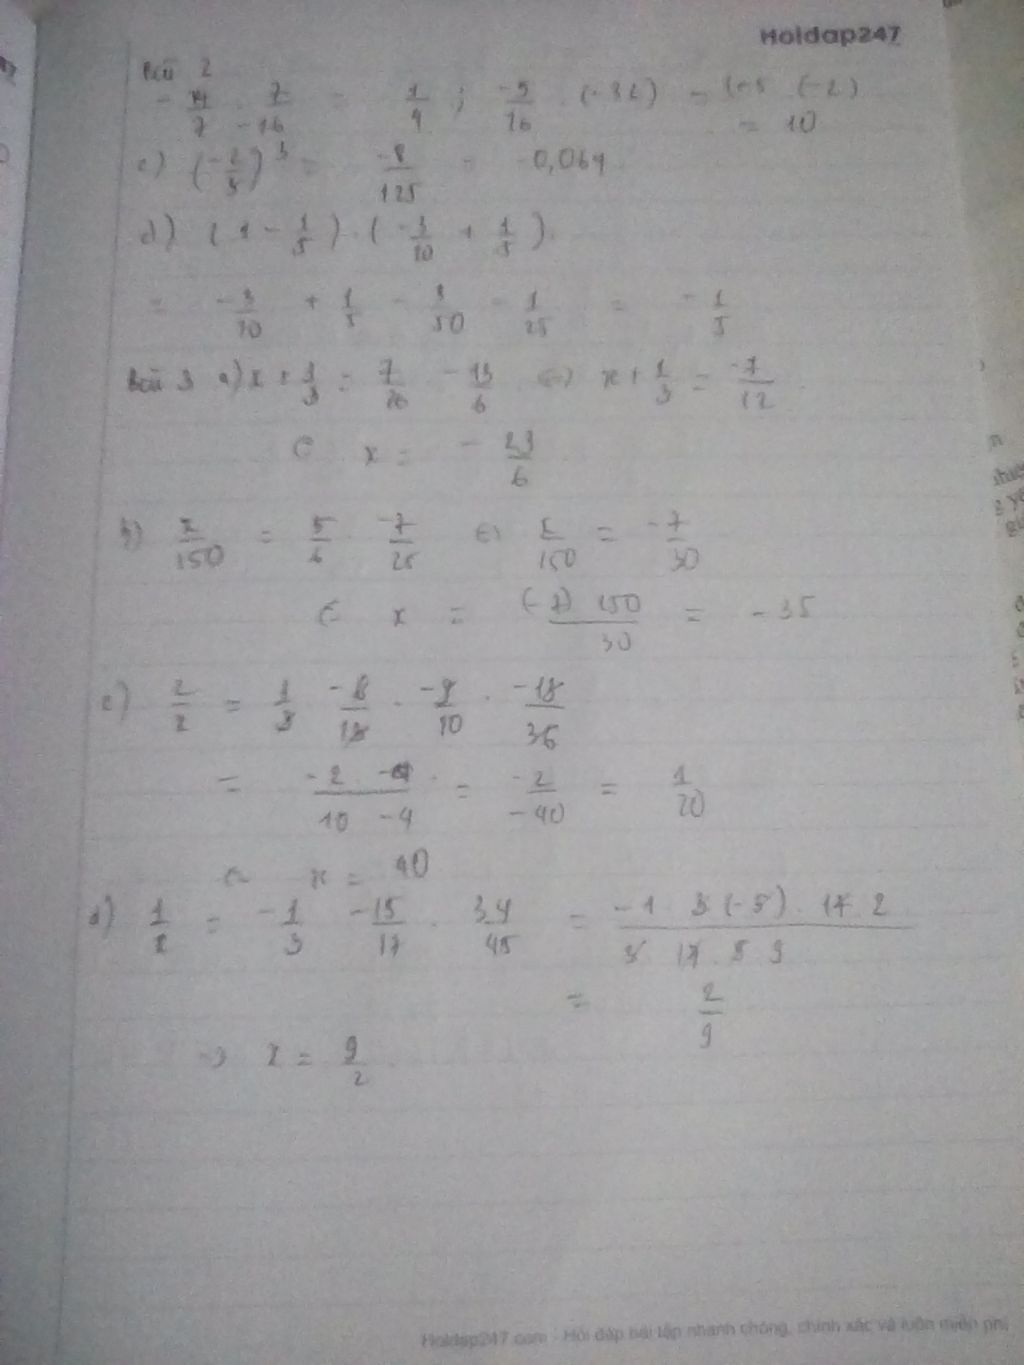 Hoidap247
Bài 2
-14/7 . 7/-16 = 1/4 ; -5/16 . (-32) = (-5 (-2)
= 10
c) (-2/5)^3 = -8/125 = -0,064
d) (1 - 1/5) . (-3/10 + 1/5).
= -3/10 + 1/5 - 3/50 - 1/25 = -1/5
Bài 3 a) x + 1/3 = 7/26 . -13/6 <=> x + 1/3 = -7/12
x = -23/6
b) x/150 = 5/6 . -7/25 <=> x/150 = -7/30
x = (-7) 150/30 = -35
c) 2/x = 1/3 -8/18 . -9/10 . -18/36
= -2 /10 -4 = -2/-40 = 1/20
x = 40
d) 1/x = -1/3 -15/17 . 34/45 = -1 3 (-5) . 17 2/3 17 . 5 9
= 2/9
=> x = 9/2
Hoidap247.com - Hỏi đáp bài tập nhanh chóng, chính xác và luôn miễn phí